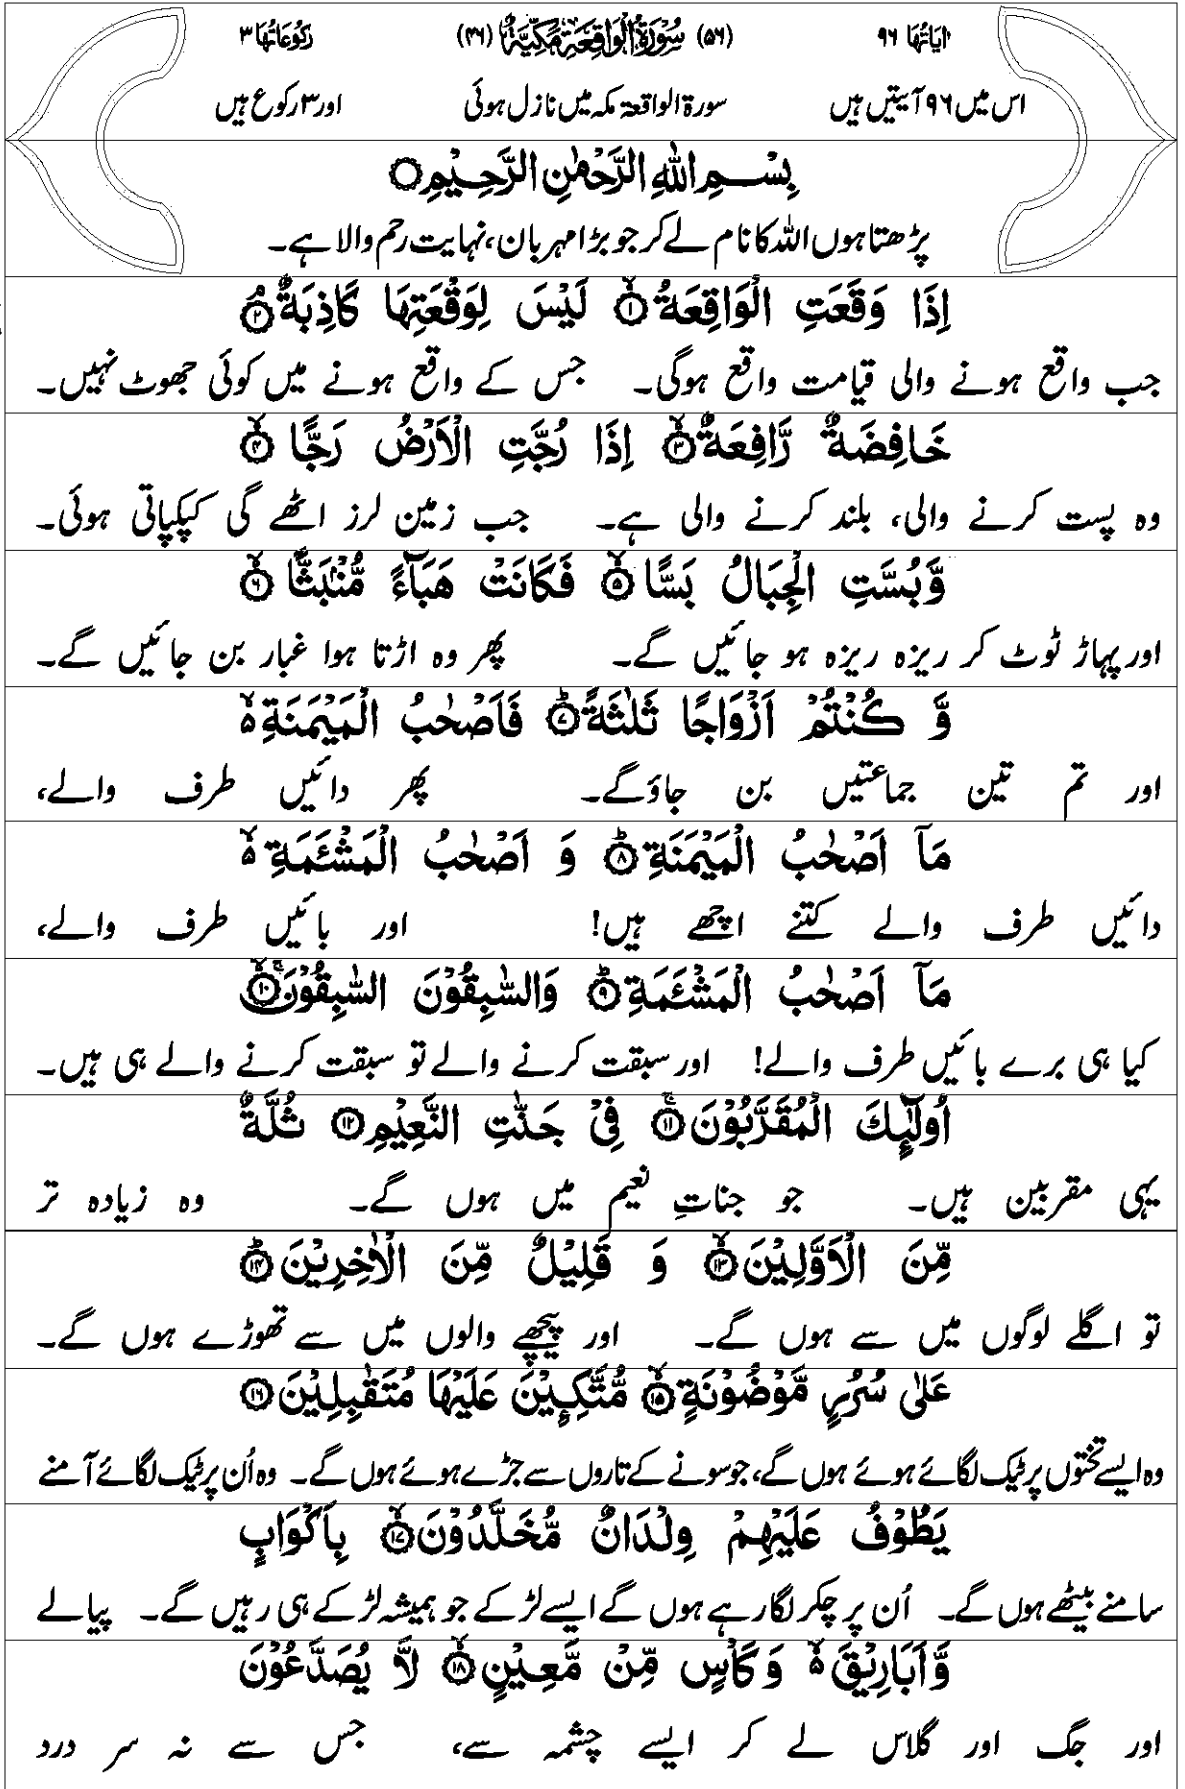 اٰيَاتُهَا ٩٦ (٥٦) سُوْرَةُ الْوَاقِعَةِ مَكِّيَّةٌ (٤٦) رُكُوْعَاتُهَا ٣
اس میں ٩٦ آیتیں ہیں سورۃ الواقعۃ مکہ میں نازل ہوئی اور ٣ رکوع ہیں
بِسْمِ اللّٰهِ الرَّحْمٰنِ الرَّحِيْمِ○
پڑھتا ہوں اللہ کا نام لے کر جو بڑا مہربان، نہایت رحم والا ہے۔
اِذَا وَقَعَتِ الْوَاقِعَةُ ۙ﴿۱﴾ لَيْسَ لِوَقْعَتِهَا كَاذِبَةٌ ۘ﴿۲﴾
جب واقع ہونے والی قیامت واقع ہوگی۔ جس کے واقع ہونے میں کوئی جھوٹ نہیں۔
خَافِضَةٌ رَّافِعَةٌ ۙ﴿۳﴾ اِذَا رُجَّتِ الْاَرْضُ رَجًّا ۙ﴿۴﴾
وہ پست کرنے والی، بلند کرنے والی ہے۔ جب زمین لرز اٹھے گی کپکپاتی ہوئی۔
وَّبُسَّتِ الْجِبَالُ بَسًّا ۙ﴿۵﴾ فَكَانَتْ هَبَآءً مُّنْۢبَثًّا ۙ﴿۶﴾
اور پہاڑ ٹوٹ کر ریزہ ریزہ ہو جائیں گے۔ پھر وہ اڑتا ہوا غبار بن جائیں گے۔
وَّ كُنْتُمْ اَزْوَاجًا ثَلٰثَةً ؕ﴿۷﴾ فَاَصْحٰبُ الْمَيْمَنَةِ ۙ۬
اور تم تین جماعتیں بن جاؤگے۔ پھر دائیں طرف والے،
مَآ اَصْحٰبُ الْمَيْمَنَةِ ؕ﴿۸﴾ وَ اَصْحٰبُ الْمَشْـَٔمَةِ ۙ۬
دائیں طرف والے کتنے اچھے ہیں! اور بائیں طرف والے،
مَآ اَصْحٰبُ الْمَشْـَٔمَةِ ؕ﴿۹﴾ وَالسّٰبِقُوْنَ السّٰبِقُوْنَ ۚۙ﴿۱۰﴾
کیا ہی برے بائیں طرف والے! اور سبقت کرنے والے تو سبقت کرنے والے ہی ہیں۔
اُولٰٓئِكَ الْمُقَرَّبُوْنَ ۚ﴿۱۱﴾ فِيْ جَنّٰتِ النَّعِيْمِ ﴿۱۲﴾ ثُلَّةٌ
یہی مقربین ہیں۔ جو جناتِ نعیم میں ہوں گے۔ وہ زیادہ تر
مِّنَ الْاَوَّلِيْنَ ۙ﴿۱۳﴾ وَ قَلِيْلٌ مِّنَ الْاٰخِرِيْنَ ؕ﴿۱۴﴾
تو اگلے لوگوں میں سے ہوں گے۔ اور پیچھے والوں میں سے تھوڑے ہوں گے۔
عَلٰى سُرُرٍ مَّوْضُوْنَةٍ ۙ﴿۱۵﴾ مُّتَّكِـِٕيْنَ عَلَيْهَا مُتَقٰبِلِيْنَ ﴿۱۶﴾
وہ ایسے تختوں پر ٹیک لگائے ہوئے ہوں گے، جو سونے کے تاروں سے جڑے ہوئے ہوں گے۔ وہ اُن پر ٹیک لگائے آمنے
يَطُوْفُ عَلَيْهِمْ وِلْدَانٌ مُّخَلَّدُوْنَ ۙ﴿۱۷﴾ بِاَكْوَابٍ
سامنے بیٹھے ہوں گے۔ اُن پر چکر لگا رہے ہوں گے ایسے لڑکے جو ہمیشہ لڑکے ہی رہیں گے۔ پیالے
وَّاَبَارِيْقَ ۙ۬ وَكَاْسٍ مِّنْ مَّعِيْنٍ ۙ﴿۱۸﴾ لَّا يُصَدَّعُوْنَ
اور جگ اور گلاس لے کر ایسے چشمہ سے، جس سے نہ سر درد